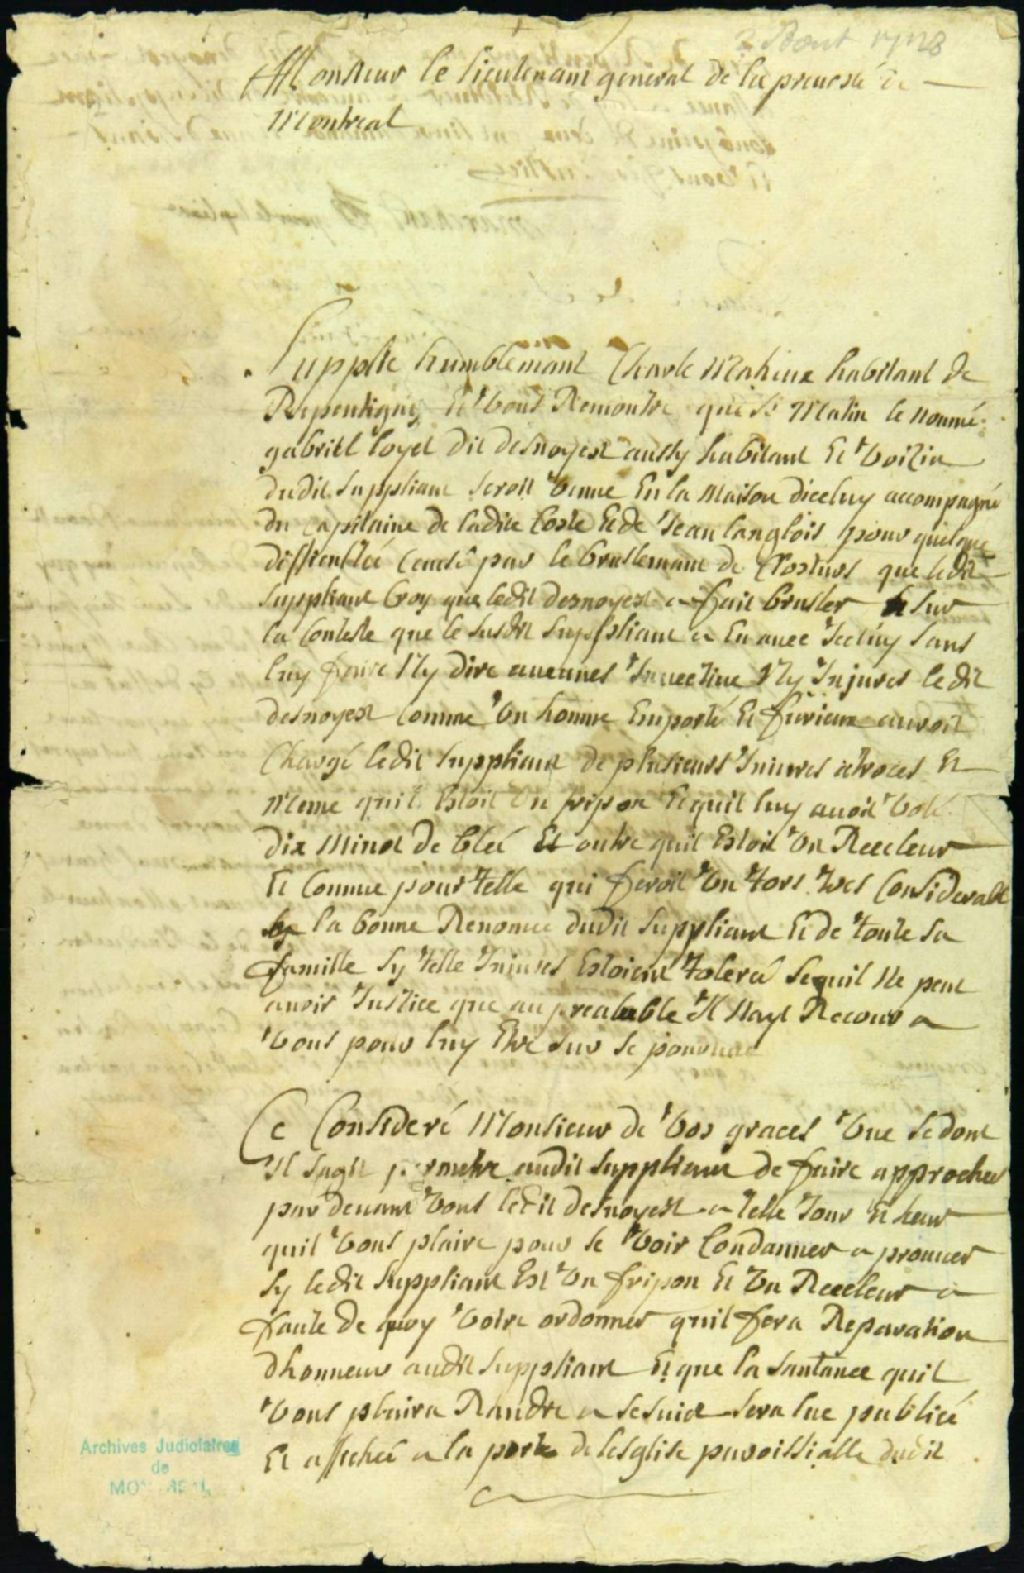 2 Aout 1728
A Monsieur le lieutenant general de la prevosté de
Montreal
Supplie humblemant Charle Maheux habitant de
Repentigny Et vous Remontre que se Matin le nommé
gabriel loyel dit desnoyest aussy habitant Et voizin
dudit suppliant seroit venue En la Maison diceluy accompagné
du Capitaine de ladite Coste Et de Jean langlois pour quelque
difficultée Causé par le bruslemant de Clostures que ledit
suppliant Croy que ledit desnoyest a fait brusler sur
la Conteste que le susdit suppliant a Eu avec Iceluy sans
luy faire Ny dire aucunes Invective Ny Injures ledit
desnoyest Comme Un homme Emporté Et furieux auroit
Chargé ledit suppliant de plusieurs Iniures atroces Et
Meme quil Estoit Un fripon Et quil luy avoit Volé
dix Minot de blée Et outre quil Estoit Un Receleur
Et Connue pour telle qui feroit Un tors tres Considerable
a la bonne Renomée dudit suppliant Et de toute sa
famille sy telle Iniures Estoient toleré se quil Ne peut
avoir Justice que au prealable Il Nayt Recours a
Vous pour luy Etre sur se pourvue
Ce Consideré Monsieur de Vos graces Vue se dont
Il sagit permetre audit suppliant de faire approcher
par devant Vous ledit desnoyest a telle Jour Et heur
quil Vous plaire pour se Voir Condanner a prouver
sy ledit suppliant Est Un fripon Et Un Receleur a
faute de quoy Voire ordonner quil fera Reparation
dhonneur audit suppliant Et que la santance quil
Vous plaira Randre a se suiet sera lue publiée
Et affichée a la porte de lesglise paroissialle dudit
Archives Judiciaires
de
MONTREAL